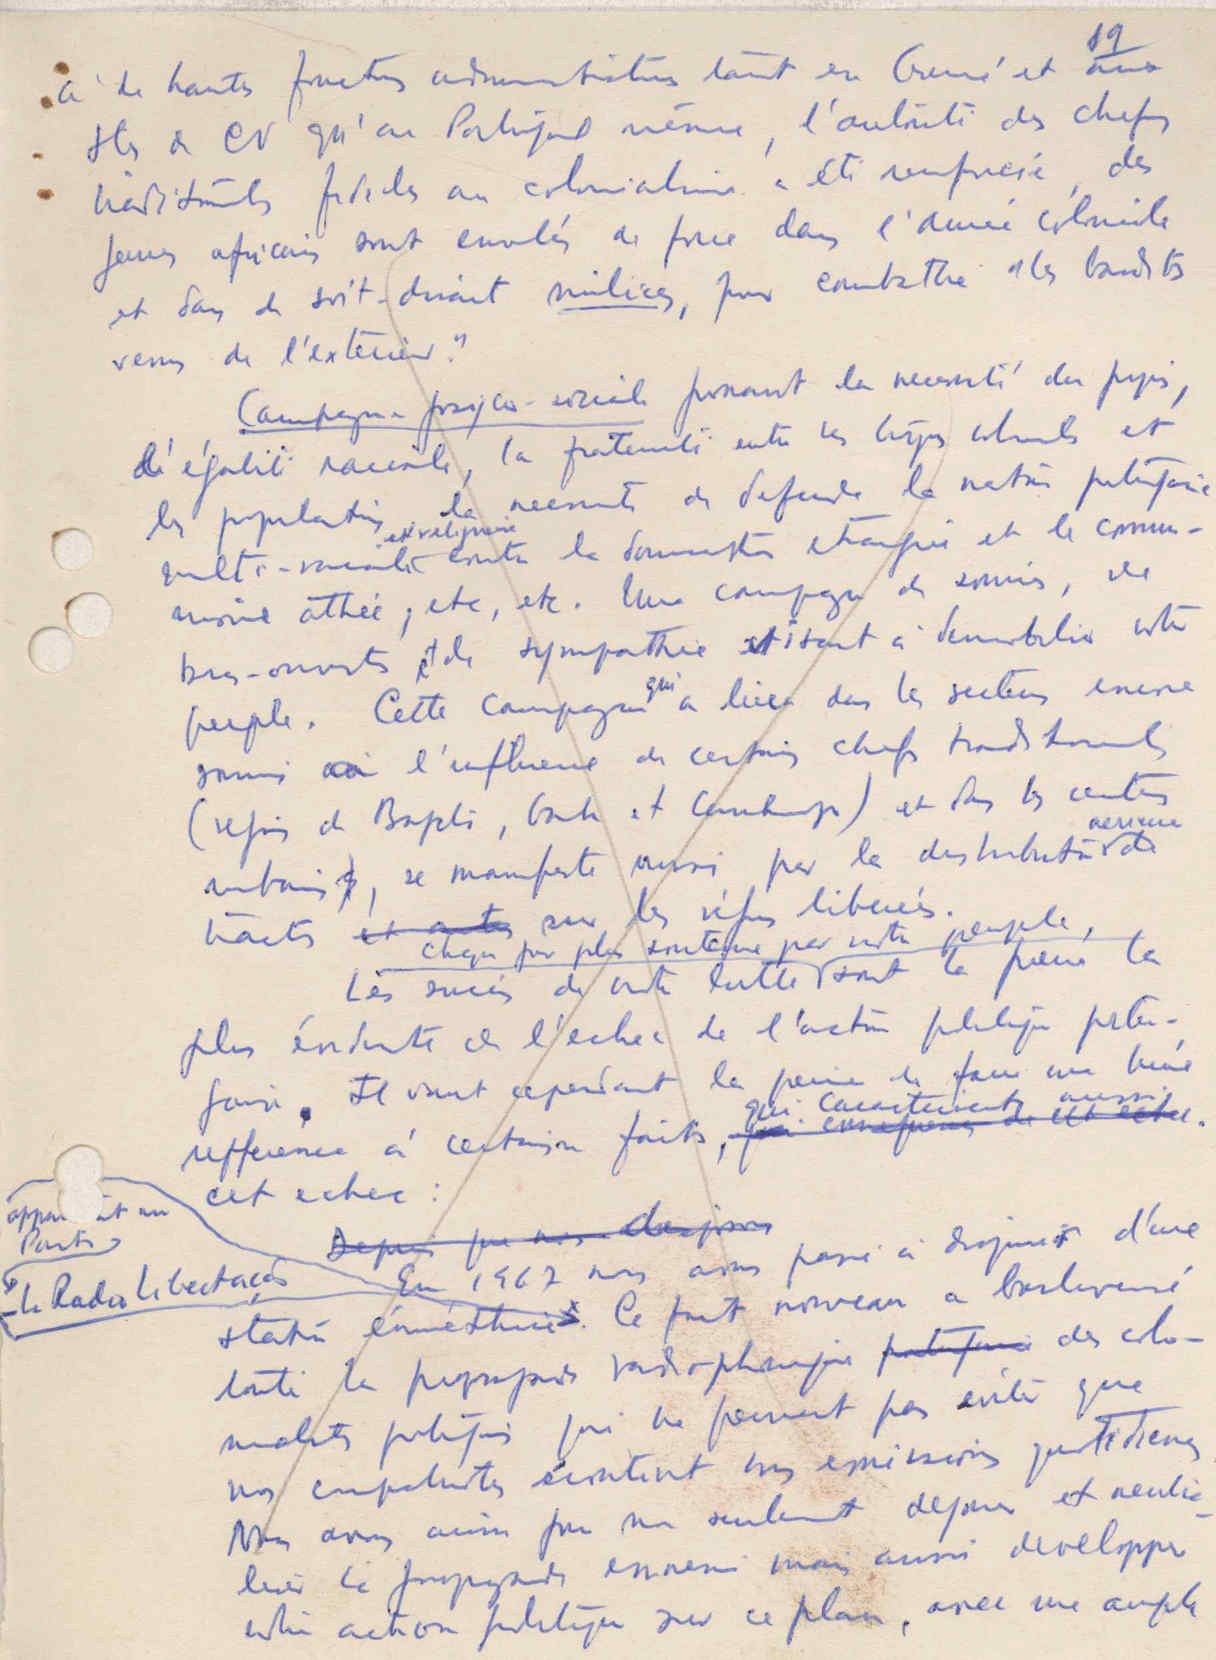 19
à de hautes fonctions administratives tant en Guiné et aux
Iles du CV qu'au Portugal même, l'autorité des chefs
traditionnels fidèles au colonialisme a été renforcée, des
jeunes africains sont enrolés de force dans l'armée coloniale
et dans de soit-disant milices, pour combattre "les bandits
venus de l'exterieur."
Campagne psyco-sociale prônant la necessité du pays,
l'égalité raciale, la fraternité entre les troupes coloniales et
les populations, la necessité de defendre la nation portugaise
et religieuse
multi-raciale contre la domination etrangère et le commu-
nisme athée, etc, etc. Une campagne de sourires, de
bras-ouverts et de sympathie visant à demobiliser notre
peuple. Cette campagne qui a lieu dans les secteurs encore
soumis à l'influence de certains chefs traditionnels
(region de Bafatá, Gabu et Canchungo) et dans les centres
urbains, se manifeste aussi par la distribution aerienne de
tracts et autres sur les régions liberées.
chaque jour plus soutenue par notre peuple,
Les succès de notre lutte sont la preuve la
plus évidente de l'echec de l'action politique portu-
gaise. Il vaut cependant la peine de faire une brève
qui caracterisent aussi
refference à certains faits, qui consequences de cet echec.
cet echec :
Depuis que nos
En 1967 nous avons passé à disposer d'une
appartenant au
Parti
"La Radio Libertação
station émettrice. Ce fait nouveau a bouleversé
toute la propagande radiophonique portugaise des colo-
nialistes portugais qui ne peuvent pas eviter que
nos compatriotes écoutent nos emissions quotidiennes.
Nous avons ainsi pu non seulement dejouer et neutra-
liser la propagande ennemie mais aussi developper
notre action politique sur ce plan, avec une ample